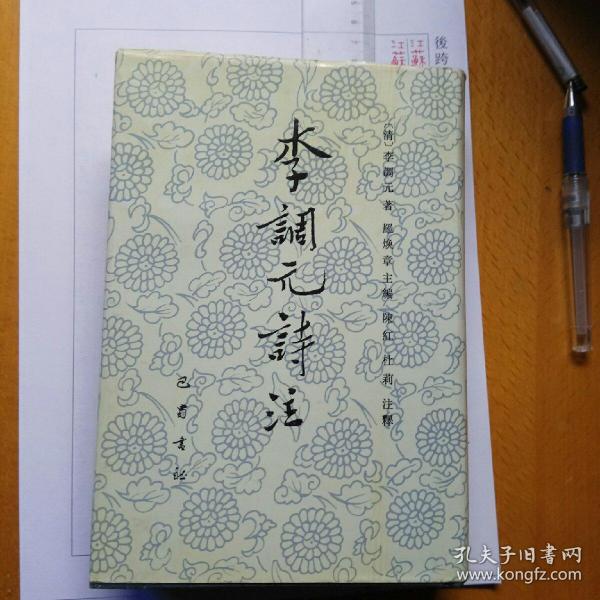 後跨
江蘇
江蘇
〔清〕李調元 著 羅煥章 主編 陳紅 杜莉 注釋
李調元詩注
巴蜀書社
孔夫子旧书网
www.kongfz.com